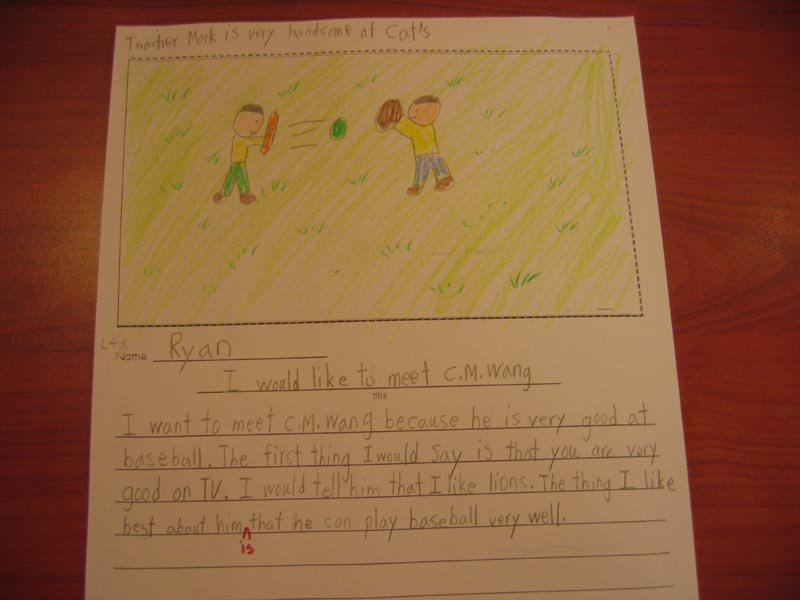 Teacher Mark is very handsome at Cat's
L4a
Name Ryan
I would like to meet C.M.Wang
title
I want to meet C.M.Wang because he is very good at
baseball. The first thing I would say is that you are very
good on TV. I would tell him that I like lions. The thing I like
best about him ^ that he can play baseball very well.
is